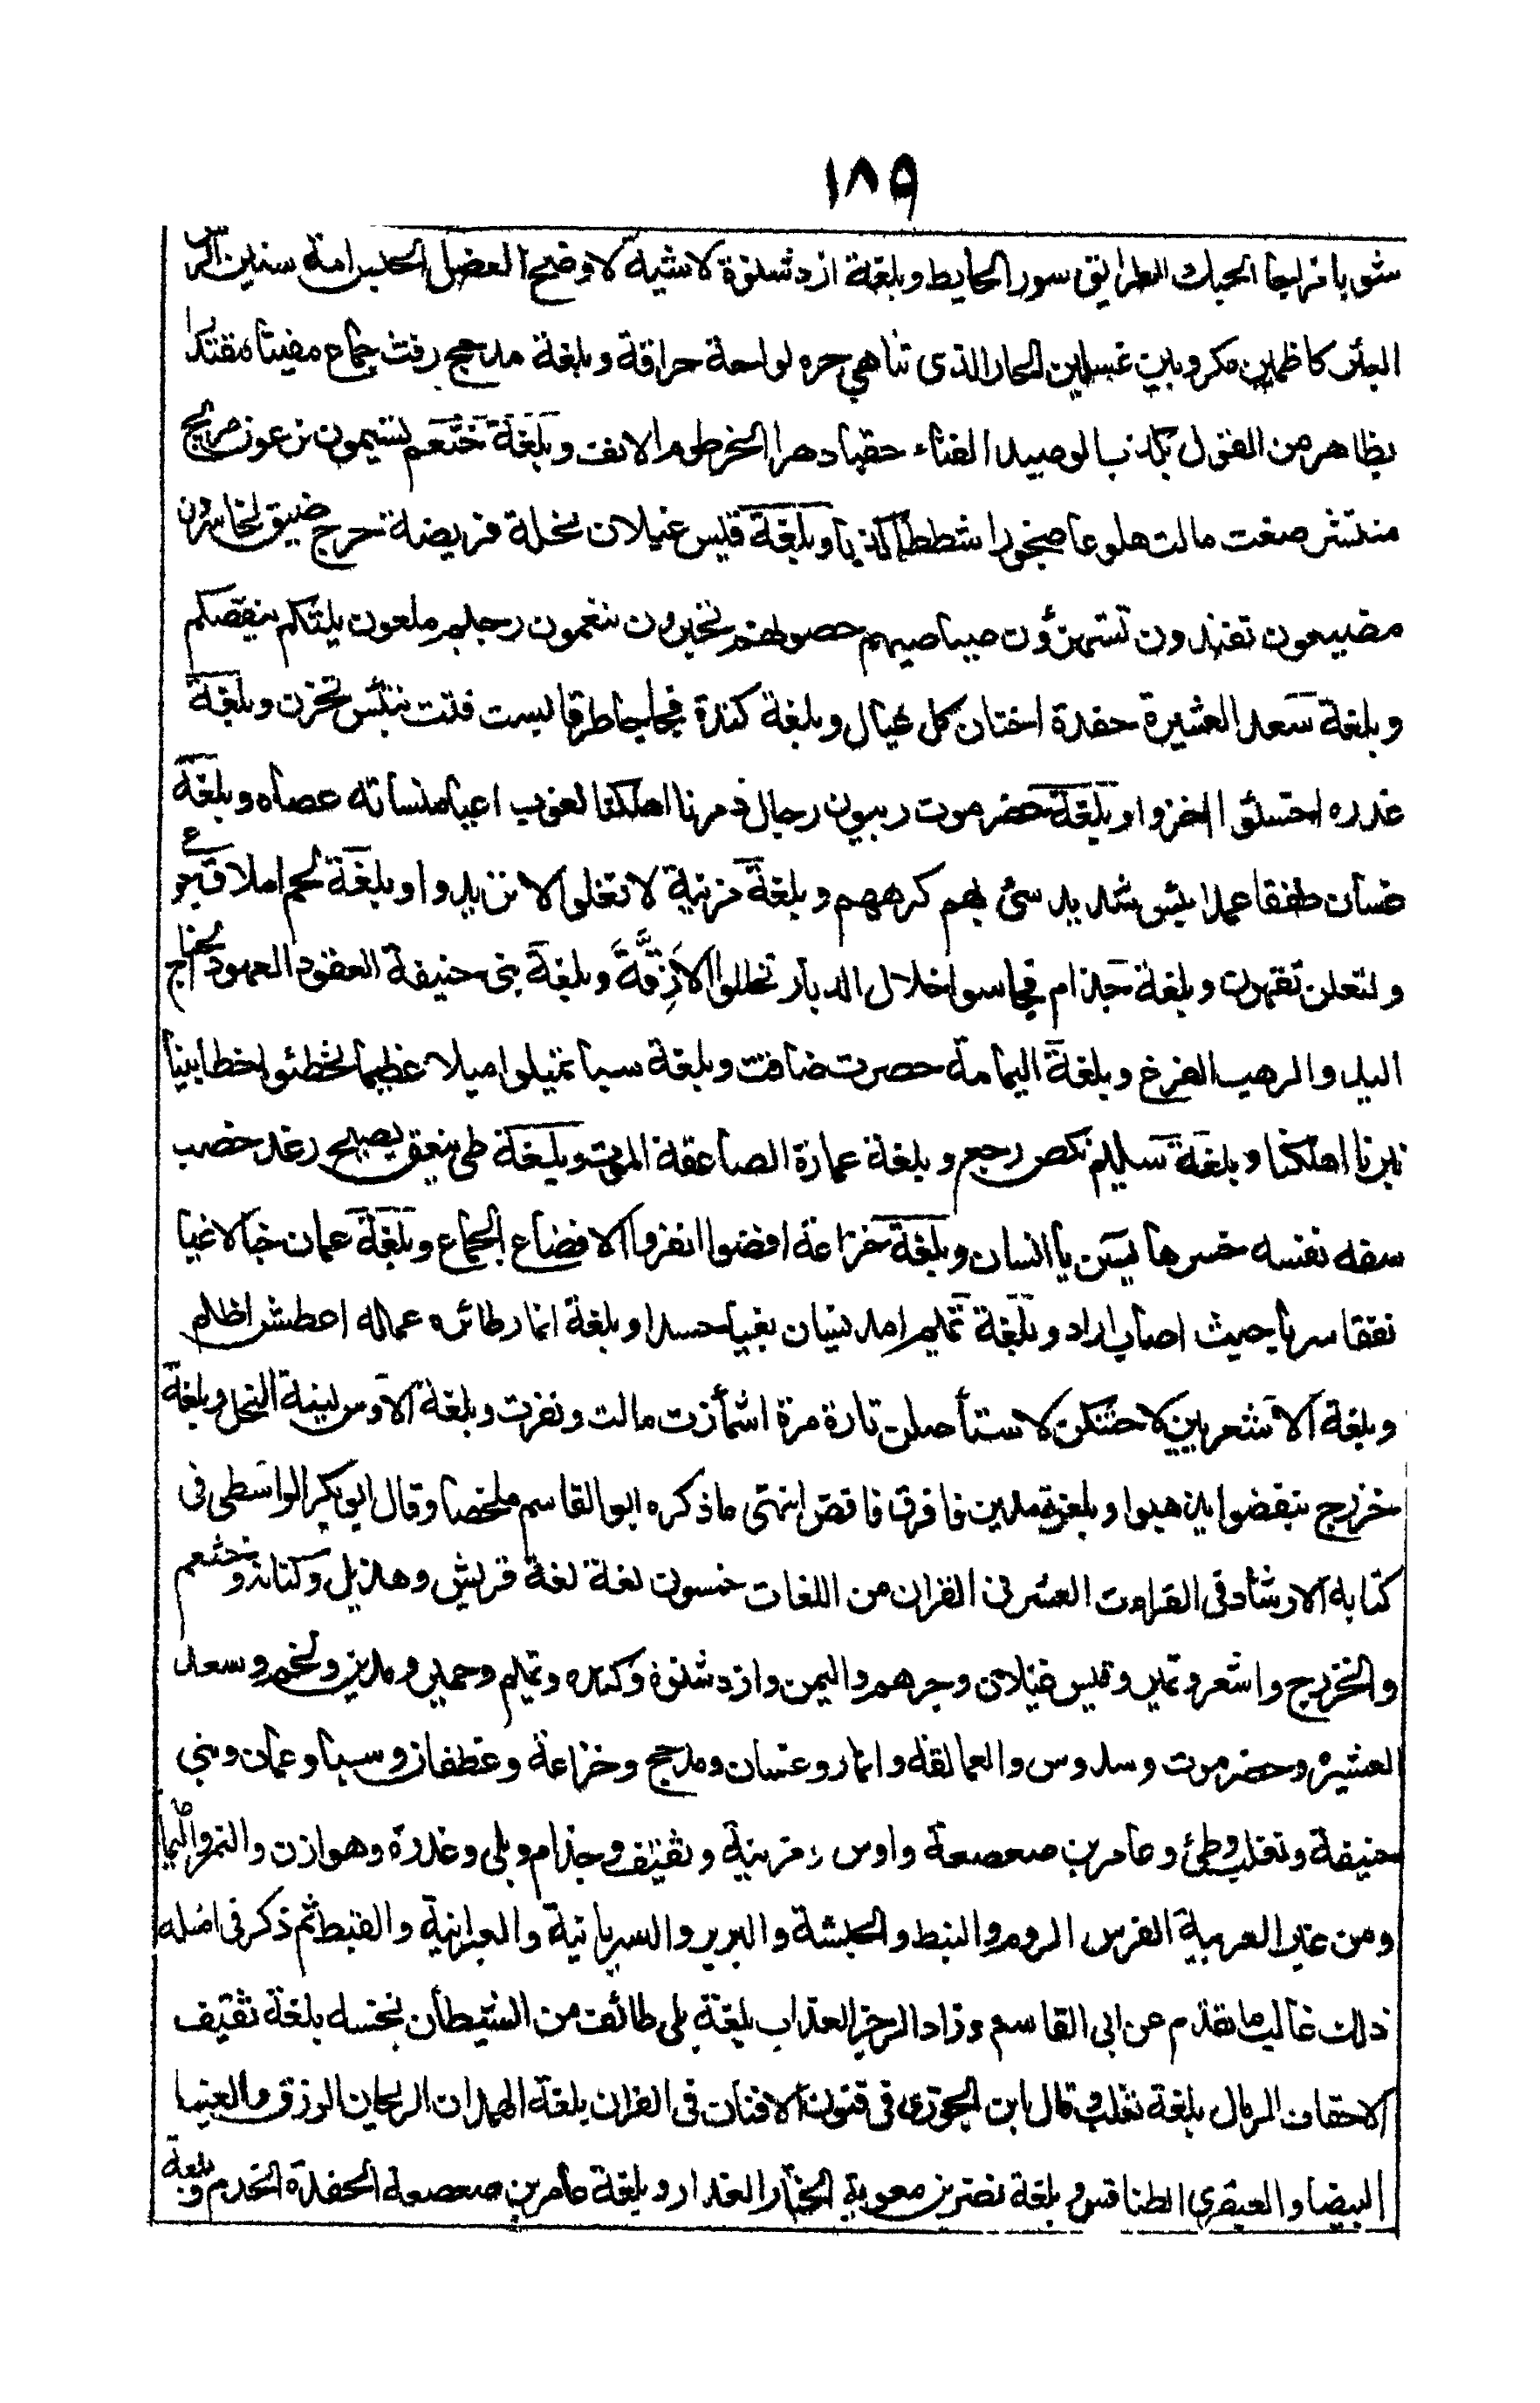 ١٨٩
شوبا مزاجا الحبك الطرايق سور الحايط وبلغة ازد شنوة لاشية لا وضح العضل الحبس امة سنين الرس
البئر كاظمين مكروبين غسلين الحار الذى تناهى حره لواحة حراقة وبلغة مدحج رفث جماع مقيتا مقتدرا
بظاهر من القول بكذب الوصيد الفناء حقبا دهرا الخرطوم الانف وبلغة ختعم تسيمون ترعون مريج
منتشر صغت مالت هلوعا ضجورا شططا كذبا وبلغة قيس غيلان نحلة فريضة حرج ضيق لخاسرون
مضيعون تفندون تستهزؤن صياصيهم حصونهم تحبرون تنعمون رجيم ملعون يلتكم ينقصكم
وبلغة سعد العشيرة حفدة اختان كل عيال وبلغة كندة فجاجا طرقا بست فتت تبتئس تحزن وبلغة
عدره اخسئوا اخزوا وبلغة حضرموت ربيون رجال دمرنا اهلكنا لغوب اعيا منساته عصاه وبلغة
غسان طفقا عمدا بئيس شديد سئ بهم كرههم وبلغة مزنية لا تغلوا لا تزيدوا وبلغة لحم املاق جوع
ولتعلن تقهرن وبلغة جذام فجاسوا خلال الديار تخللوا الازقة وبلغة بنى حنيفة العقود العهود الجناح
اليد والرهب الفزع وبلغة اليمامة حصرت ضاقت وبلغة سبا تميلوا ميلا عظيما تخطئوا خطا بينا
تبرنا اهلكنا وبلغة سليم نكص رجع وبلغة عمارة الصاعقة الموت وبلغة طى ينعق يصيح رغد خصب
سفه نفسه خسرها يسن يا انسان وبلغة خزاعة افضوا انفزوا الافضاع الجماع وبلغة عمان خبالا غيا
نفقا سربا حيث اصاب اراد وبلغة تميم امد نسيان بغيا حسدا وبلغة انمار طائره عمله اغطش اظلم
وبلغة الاشعريين لاحتنكن لاستأصلن تارة مرة اشمأزت مالت ونفرت وبلغة الاوس لينة النخل وبلغة
خزرج ينفضوا يذهبوا وبلغة مدين فافرق فاقض انتهى ما ذكره ابو القاسم ملخصا وقال ابو بكر الواسطى فى
كتابه الارشاد فى القراءت العشر فى القران من اللغات خمسون لغة لغة قريش وهذيل وكنانة وختعم
والخزرج واشعر ونمير وقيس غيلان وجرهم واليمن وازد شنوة وكنده وتميم وحمير ومدين ولخم وسعد
العشيره وحضرموت وسدوس والعمالقة وانمار وغسان ومدحج وخزاعة وغطفان وسبا وعمان وبنى
حنيفة وتغلب وطئ وعامر بن صعصعة واوس ومزينة وثقيف وجذام وبلى وعدرة وهوازن والنمر واليمامة
ومن غير العربية الفرس الروم والنبط والحبشة والبربر والسريانية والعبرانية والقبط ثم ذكر فى امثله
ذلك غالب ما تقدم عن ابى القاسم وزاد الرجز العذاب بلغة بلى طائف من الشيطان نخسه بلغة ثقيف
الاحقاف الرمال بلغة ثعلب وقال ابن الجوزى فى فنون الافنان فى القران بلغة الهمدان الريحان الرزق والعينا
البيضا والعبقرى الطنافس وبلغة نصر بن معوية الختار الغدار وبلغة عامر بن صعصعة الحفدة الخدم وبلغة